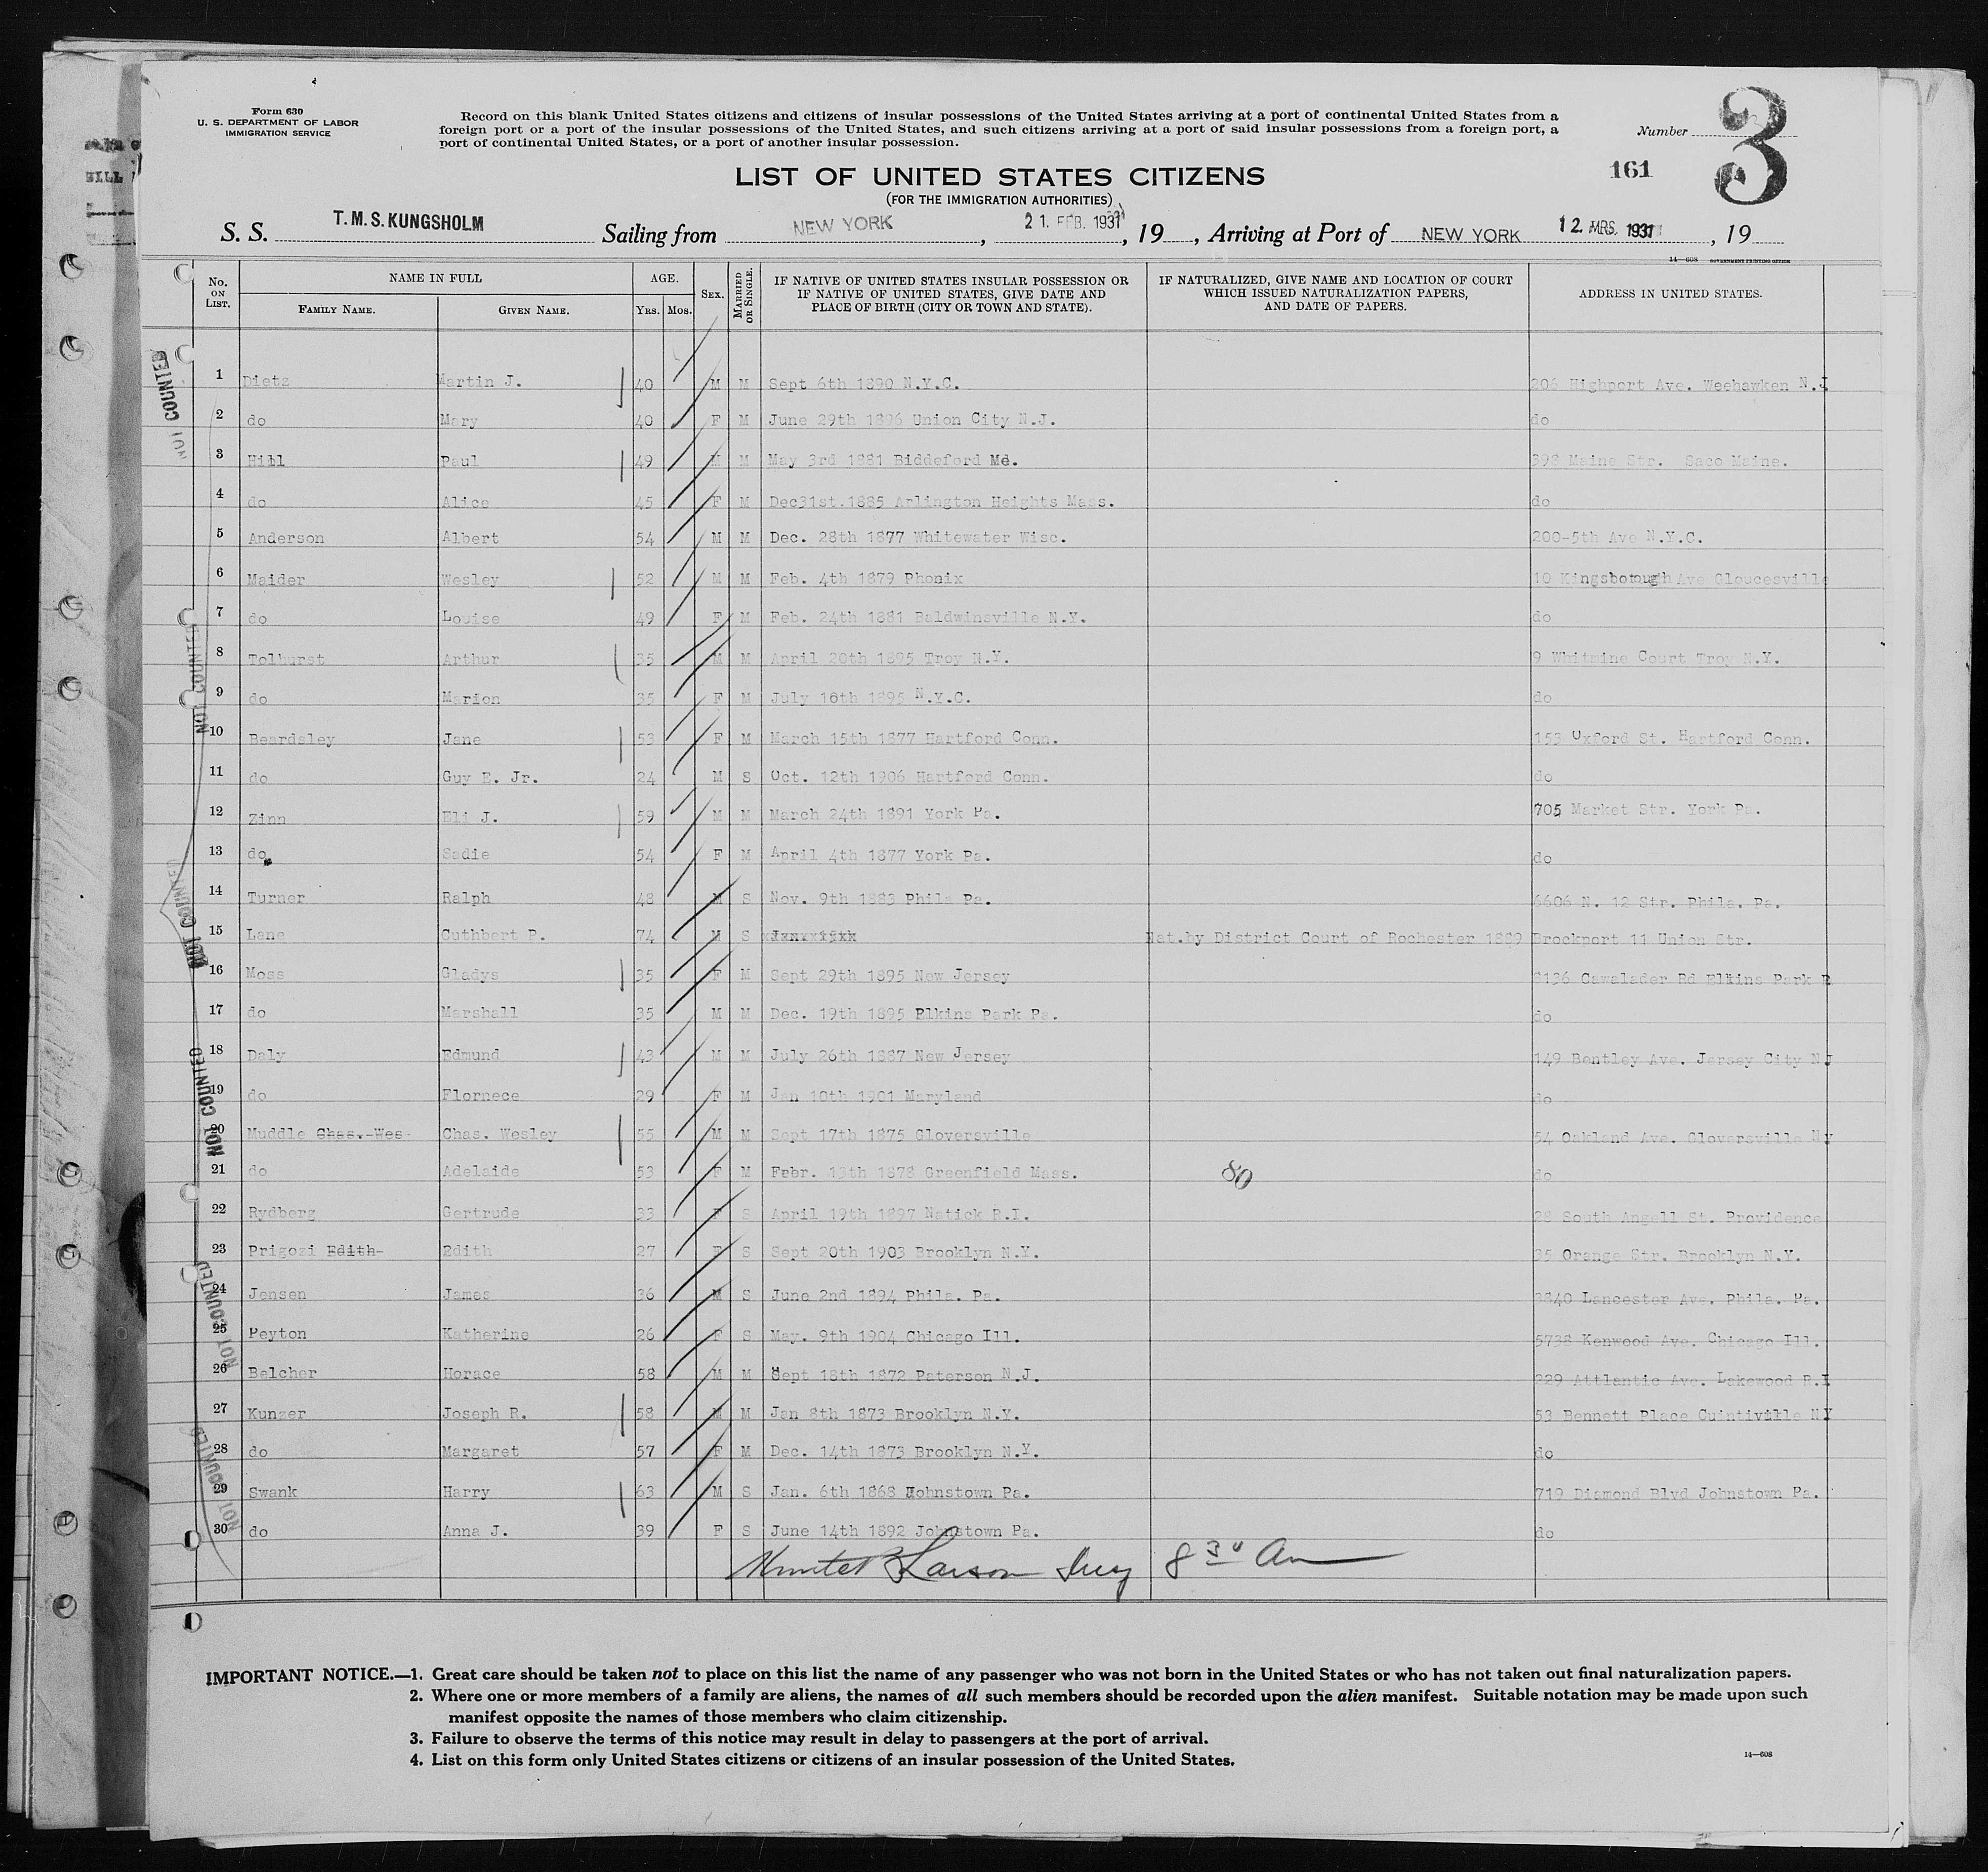 Form 630
U. S. DEPARTMENT OF LABOR
IMMIGRATION SERVICE
Record on this blank United States citizens and citizens of insular possessions of the United States arriving at a port of continental United States from a
foreign port or a port of the insular possessions of the United States, and such citizens arriving at a port of said insular possessions from a foreign port, a
port of continental United States, or a port of another insular possession.
Number 3
161
LIST OF UNITED STATES CITIZENS
(FOR THE IMMIGRATION AUTHORITIES)
S. S. T.M.S. KUNGSHOLM Sailing from NEW YORK, 21. FEB. 1931, 19 , Arriving at Port of NEW YORK 12. MRS. 1931, 19
14—608 GOVERNMENT PRINTING OFFICE
No. ON LIST. NAME IN FULL AGE. SEX. MARRIED OR SINGLE. IF NATIVE OF UNITED STATES INSULAR POSSESSION OR IF NATIVE OF UNITED STATES, GIVE DATE AND PLACE OF BIRTH (CITY OR TOWN AND STATE). IF NATURALIZED, GIVE NAME AND LOCATION OF COURT WHICH ISSUED NATURALIZATION PAPERS, AND DATE OF PAPERS. ADDRESS IN UNITED STATES.
FAMILY NAME. GIVEN NAME. YRS. MOS.
1 Dietz Martin J. 40 M M Sept 6th 1890 N.Y.C. 206 Highport Ave. Weehawken N.J
2 do Mary 40 F M June 29th 1896 Union City N.J. do
3 Hill Paul 49 M M May 3rd 1881 Biddeford Md. 398 Maine Str. Saco Maine.
4 do Alice 45 F M Dec31st.1885 Arlington Heights Mass. do
5 Anderson Albert 54 M M Dec. 28th 1877 Whitewater Wisc. 200-5th Ave N.Y.C.
6 Maider Wesley 52 M M Feb. 4th 1879 Phonix 10 Kingsborough Ave Gloucesville
7 do Louise 49 F M Feb. 24th 1881 Baldwinsville N.Y. do
8 Tolhurst Arthur 35 M M April 20th 1895 Troy N.Y. 9 Whitmine Court Troy N.Y.
9 do Marion 35 F M July 18th 1895 N.Y.C. do
10 Beardsley Jane 53 F M March 15th 1877 Hartford Conn. 153 Oxford St. Hartford Conn.
11 do Guy E. Jr. 24 M S Oct. 12th 1906 Hartford Conn. do
12 Zinn Eli J. 59 M M March 24th 1891 York Pa. 705 Market Str. York Pa.
13 do Sadie 54 F M April 4th 1877 York Pa. do
14 Turner Ralph 48 M S Nov. 9th 1883 Phila Pa. 6606 N. 12 Str. Phila. Pa.
15 Lane Cuthbert P. 74 M S Nat.by District Court of Rochester 1889 Brockport 11 Union Str.
16 Moss Gladys 35 F M Sept 29th 1895 New Jersey 8136 Cawalader Rd Elkins Park P
17 do Marshall 35 M M Dec. 19th 1895 Elkins Park Pa. do
18 Daly Edmund 43 M M July 26th 1887 New Jersey 149 Bentley Ave. Jersey City NJ
19 do Flornece 29 F M Jan 10th 1901 Maryland do
20 Muddle Chas. Wes Chas. Wesley 55 M M Sept 17th 1875 Gloversville 54 Oakland Ave. Gloversville NY
21 do Adelaide 53 F M Febr. 13th 1878 Greenfield Mass. 80 do
22 Rydberg Gertrude 33 F S April 19th 1897 Natick R.I. 28 South Angell St. Providence
23 Prigozi Edith Edith 27 F S Sept 20th 1903 Brooklyn N.Y. 35 Orange Str. Brooklyn N.Y.
24 Jensen James 36 M S June 2nd 1894 Phila. Pa. 3840 Lancester Ave. Phila. Pa.
25 Peyton Katherine 26 F S May. 9th 1904 Chicago Ill. 5738 Kenwood Ave. Chicago Ill.
26 Belcher Horace 58 M M Sept 18th 1872 Paterson N.J. 229 Attlantic Ave. Lakewood R.I
27 Kunzer Joseph R. 58 M M Jan 8th 1873 Brooklyn N.Y. 53 Bennett Place Cuintiville NY
28 do Margaret 57 F M Dec. 14th 1873 Brooklyn N.Y. do
29 Swank Harry 63 M S Jan. 6th 1868 Johnstown Pa. 719 Diamond Blvd Johnstown Pa.
30 do Anna J. 39 F S June 14th 1892 Johnstown Pa. do
NOT COUNTED
NOT COUNTED
NOT COUNTED
NOT COUNTED
NOT COUNTED
NOT COUNTED
Larson 8 30 Am
IMPORTANT NOTICE.—1. Great care should be taken not to place on this list the name of any passenger who was not born in the United States or who has not taken out final naturalization papers.
2. Where one or more members of a family are aliens, the names of all such members should be recorded upon the alien manifest. Suitable notation may be made upon such
manifest opposite the names of those members who claim citizenship.
3. Failure to observe the terms of this notice may result in delay to passengers at the port of arrival.
4. List on this form only United States citizens or citizens of an insular possession of the United States.
14—608